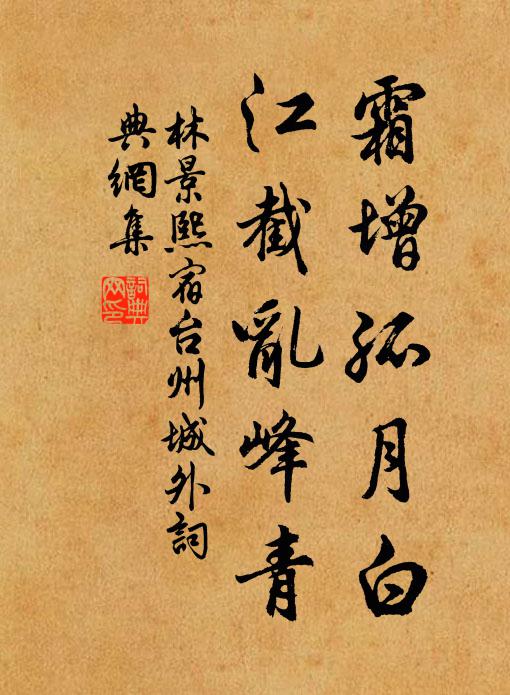 霜增孤月白
江截亂峰青
林景熙宿台州城外詞
典網集
詞典
网印